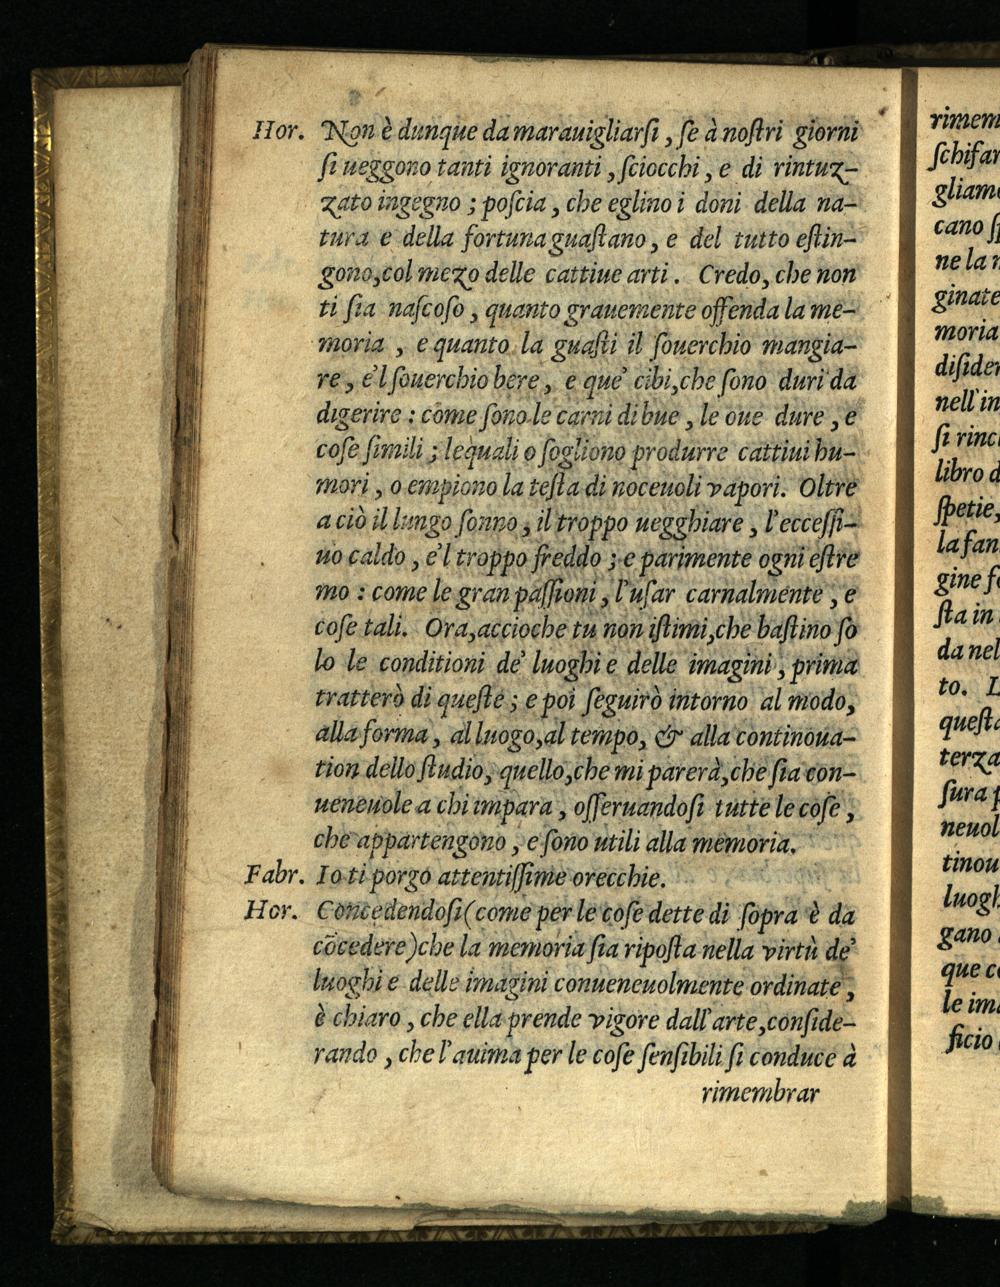 Hor. Non è dunque da marauigliarſi, ſe à noſtri giorni
ſi ueggono tanti ignoranti, ſciocchi, e di rintuz-
zato ingegno; poſcia, che eglino i doni della na-
tura e della fortuna guaſtano, e del tutto eſtin-
gono, col mezo delle cattiue arti. Credo, che non
ti ſia naſcoſo, quanto grauemente offenda la me-
moria, e quanto la guaſti il ſouerchio mangia-
re, e'l ſouerchio bere, e que' cibi, che ſono duri da
digerire: come ſono le carni di bue, le oue dure, e
coſe ſimili; lequali o ſogliono produrre cattiui hu-
mori, o empiono la teſta di noceuoli vapori. Oltre
a ciò il lungo ſonno, il troppo uegghiare, l'ecceſſi-
uo caldo, e'l troppo freddo; e parimente ogni eſtre
mo: come le gran paſſioni, l'uſar carnalmente, e
coſe tali. Ora, accioche tu non iſtimi, che baſtino ſo
lo le conditioni de' luoghi e delle imagini, prima
tratterò di queſte; e poi ſeguirò intorno al modo,
alla forma, al luogo, al tempo, & alla continoua-
tion dello ſtudio, quello, che mi parerà, che ſia con-
ueneuole a chi impara, oſſeruandoſi tutte le coſe,
che appartengono, e ſono utili alla memoria.
Fabr. Io ti porgo attentiſſime orecchie.
Hor. Concedendoſi (come per le coſe dette di ſopra è da
cõcedere) che la memoria ſia ripoſta nella virtù de'
luoghi e delle imagini conueneuolmente ordinate,
è chiaro, che ella prende vigore dall'arte, conſide-
rando, che l'auima per le coſe ſenſibili ſi conduce à
rimembrar
rimem
ſchifar
gliamo
cano ſp
ne la n
ginate
moria
diſider
nell'in
ſi rinc
libro d
ſpetie,
la fan
gine fo
ſta in
da nel
to. L
queſta
terza
ſura p
neuol
tinou
luogh
gano
que co
le ima
ficio